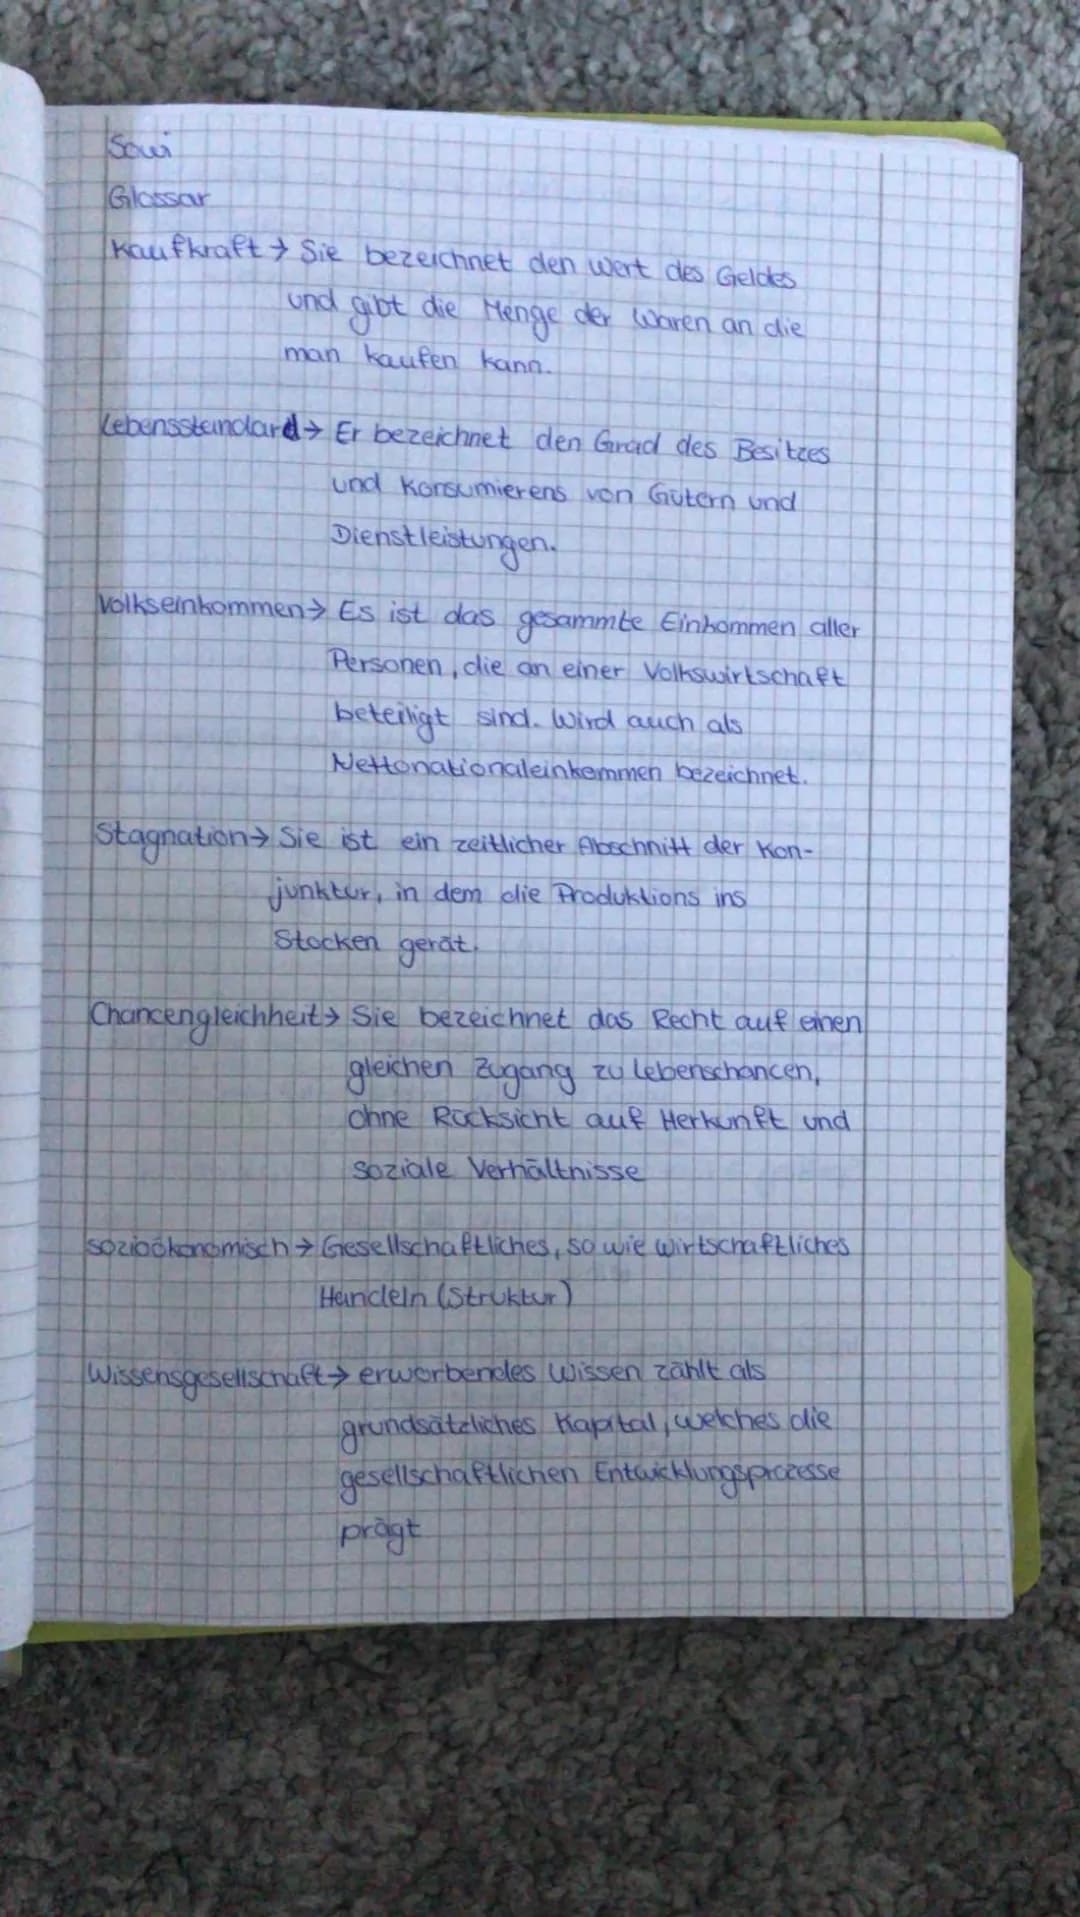 Sowi
Glossar
Kaufkraft → Sie bezeichnet den Wert des Geldes
und gibt die Menge der Waren an die
man kaufen kann.
Lebensstandard → Er bezeichnet den Grad des Besitzes
und Konsumierens von Gütern und
Dienstleistungen.
Volkseinkommen → Es ist das gesammte Einkommen aller
Personen, die an einer Volkswirtschaft
beteiligt sind. Wird auch als
Nettonationaleinkommen bezeichnet.
Stagnation → Sie ist ein zeitlicher Abschnitt der Kon-
junktur, in dem die Produktions ins
Stocken gerät.
Chancengleichheit → Sie bezeichnet das Recht auf einen
gleichen Zugang zu Lebenschancen,
ohne Rücksicht auf Herkunft und
soziale Verhältnisse
sozioökonomisch → Gesellschaftliches, so wie wirtschaftliches
Handeln (Struktur)
Wissensgesellschaft → erworbendes Wissen zählt als
grundsätzliches Kapital, welches die
gesellschaftlichen Entwicklungsprozesse
prägt